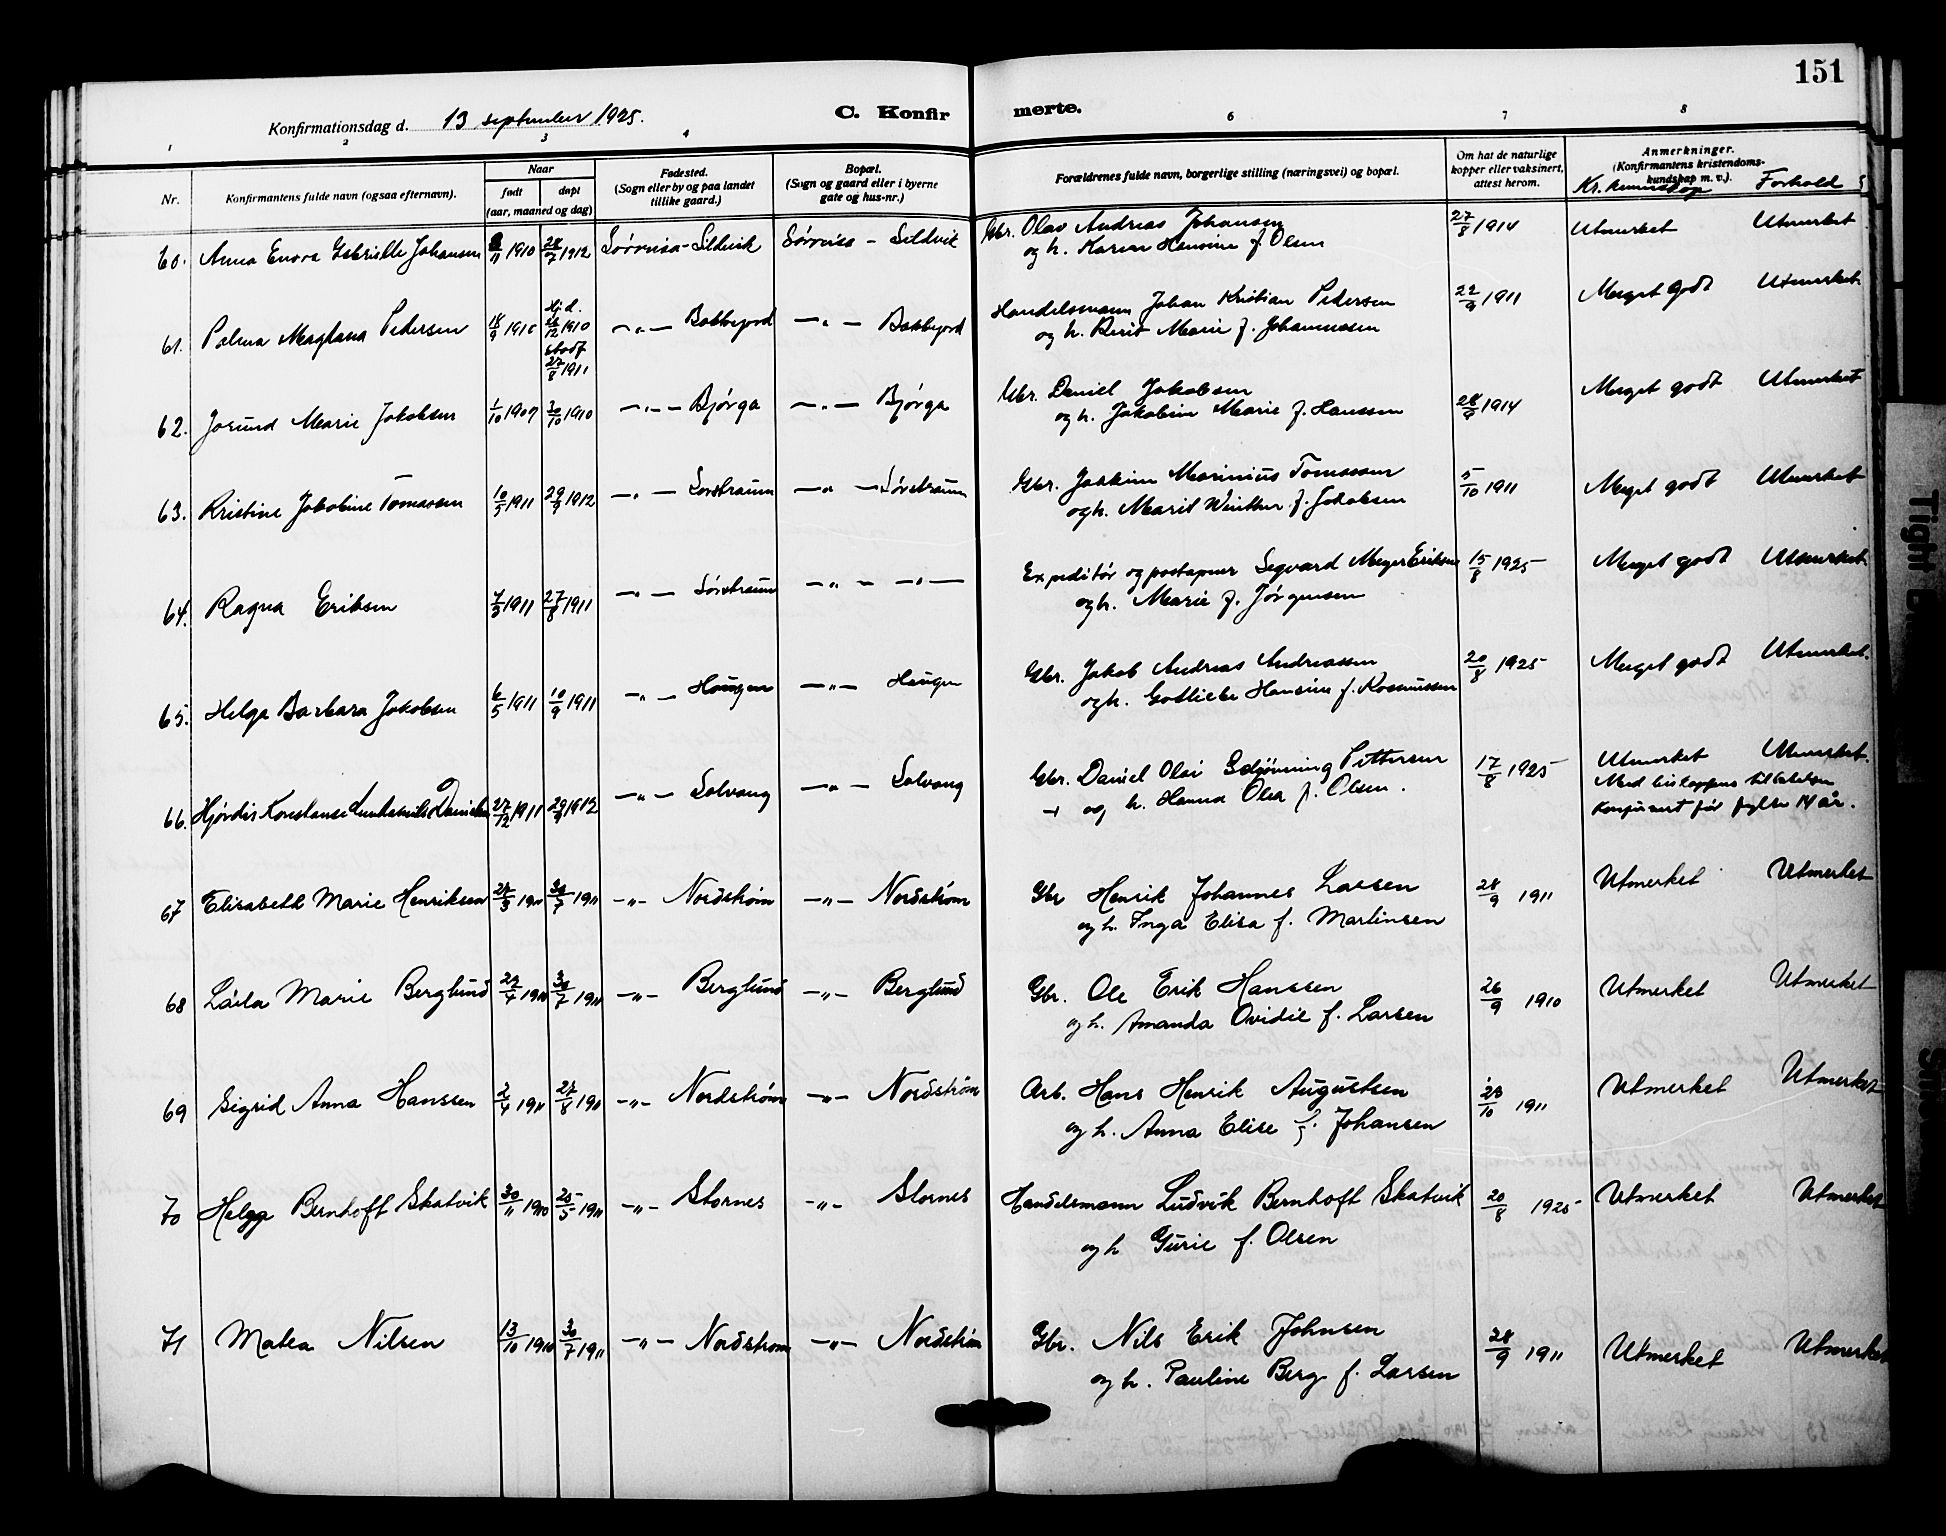 151
Konfirmationsdag d. 13 september 1925.
C. Konfirmerte.
1 2 3 4 6 7 8
Nr.
Konfirmantens fulde navn (ogsaa efternavn).
Naar
født
døpt
(aar, maaned og dag)
Fødested.
(Sogn eller by og paa landet
tillike gaard.)
Bopæl.
(Sogn og gaard eller i byerne
gate og hus-nr.)
Forældrenes fulde navn, borgerlige stilling (næringsvei) og bopæl.
Om hat de naturlige
kopper eller vaksinert,
attest herom.
Anmerkninger.
(Konfirmantens kristendoms-
kundskap m. v.).
Kr. kunnskap Forhold
60. Anna Enora Gabrielle Johansen /11 1910 28/7 1912 Sørreisa - Sildvik Sørreisa - Sildvik Gbr. Olav Andreas Johansen 27/8 1914 Utmerket Utmerket
og h. Karen Hansine f. Olsen
61. Palma Magdana Pedersen 18/9 1910 Hj.d. 26/12 1910 stadf. 27/8 1911 -"- Bakkejord -"- Bakkejord Handelsmann Johan Kristian Pedersen 22/9 1911 Meget godt Utmerket
og h. Berit Marie f. Johannessen
62. Jorund Marie Jakobsen 1/10 1909 30/10 1910 -"- Bjørga -"- Bjørga Gbr. Daniel Jakobsen 28/9 1914 Meget godt Utmerket
og h. Jakobine Marie f. Hanssen
63. Kristine Jakobine Tomassen 10/5 1911 29/9 1912 -"- Sørstraum -"- Sørstraum Gbr. Joakim Marinius Tomassen 5/10 1911 Meget godt Utmerket
og h. Marit Winther f. Jakobsen
64. Ragna Eriksen 7/3 1911 27/8 1911 -"- Sørstraum -"- -"- Expeditør og postaapner Segvard Meyer Eriksen 15/8 1925 Meget godt Utmerket
og h. Marie f. Jørgensen
65. Helga Barbara Jakobsen 6/5 1911 10/9 1911 -"- Haugen -"- Haugen Gbr. Jakob Andreas Andreassen 20/8 1925 Meget godt Utmerket.
og h. Gotliebe Hansine f. Rasmussen
66. Hjørdis Konstanse Danielsen 27/12 1911 29/9 1912 -"- Solvang -"- Solvang Gbr. Daniel Olai Pettersen 17/8 1925 Utmerket Utmerket.
og h. Hanna Olea f. Olsen. Med biskoppens tillatelse
konfirmert før fylte 14 år.
67 Elisabeth Marie Henriksen 27/3 1911 30/7 1911 -"- Nordstrøm -"- Nordstrøm Gbr Henrik Johannes Larsen 28/9 1911 Utmerket Utmerket
og h. Inga Elisa f. Martinsen
68 Laila Marie Berglund 29/4 1911 30/7 1911 -"- Berglund -"- Berglund Gbr. Ole Erik Hanssen 26/9 1910 Utmerket Utmerket
og h. Amanda Ovidie f. Larsen
69 Sigrid Anna Hanssen 2/4 1911 27/8 1911 -"- Nordstrøm -"- Nordstrøm Arb. Hans Henrik Augustsen 23/10 1911 Utmerket Utmerket
og h. Anna Elise f. Johansen
70 Helga Bernhoft Skatvik 30/11 1910 25/5 1911 -"- Stornes -"- Stornes Handelsmann Ludvik Bernhoft Skatvik 20/8 1925 Utmerket Utmerket
og h Gurie f. Olsen
71 Matea Nilsen 13/10 1910 30/7 1911 -"- Nordstrøm -"- Nordstrøm Gbr. Nils Erik Johnsen 28/9 1911 Utmerket Utmerket
og h. Pauline Berg f. Larsen